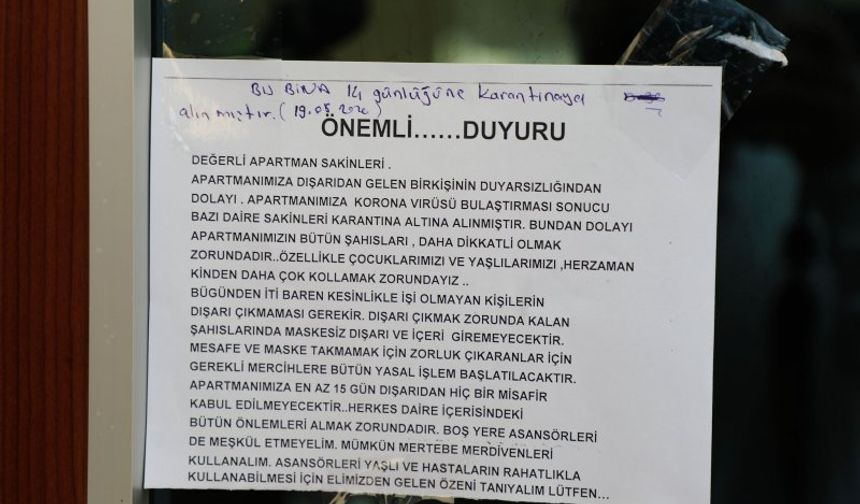 BU BİNA 14 günlüğüne karantinaya
alınmıştır. (19.05.2020)
ÖNEMLİ......DUYURU
DEĞERLİ APARTMAN SAKİNLERİ .
APARTMANIMIZA DIŞARIDAN GELEN BİRKİŞİNİN DUYARSIZLIĞINDAN
DOLAYI . APARTMANIMIZA KORONA VİRÜSÜ BULAŞTIRMASI SONUCU
BAZI DAİRE SAKİNLERİ KARANTINA ALTINA ALINMIŞTIR. BUNDAN DOLAYI
APARTMANIMIZIN BÜTÜN ŞAHISLARI , DAHA DİKKATLİ OLMAK
ZORUNDADIR..ÖZELLİKLE ÇOCUKLARIMIZI VE YAŞLILARIMIZI ,HERZAMAN
KİNDEN DAHA ÇOK KOLLAMAK ZORUNDAYIZ ..
BÜGÜNDEN İTİ BAREN KESİNLİKLE İŞİ OLMAYAN KİŞİLERİN
DIŞARI ÇIKMAMASI GEREKİR. DIŞARI ÇIKMAK ZORUNDA KALAN
ŞAHISLARINDA MASKESİZ DIŞARI VE İÇERİ GİREMEYECEKTİR.
MESAFE VE MASKE TAKMAMAK İÇİN ZORLUK ÇIKARANLAR İÇİN
GEREKLİ MERCİHLERE BÜTÜN YASAL İŞLEM BAŞLATILACAKTIR.
APARTMANIMIZA EN AZ 15 GÜN DIŞARIDAN HİÇ BİR MİSAFİR
KABUL EDİLMEYECEKTİR..HERKES DAİRE İÇERİSİNDEKİ
BÜTÜN ÖNLEMLERİ ALMAK ZORUNDADIR. BOŞ YERE ASANSÖRLERİ
DE MEŞKÜL ETMEYELİM. MÜMKÜN MERTEBE MERDİVENLERİ
KULLANALIM. ASANSÖRLERİ YAŞLI VE HASTALARIN RAHATLIKLA
KULLANABİLMESİ İÇİN ELİMİZDEN GELEN ÖZENİ TANIYALIM LÜTFEN...